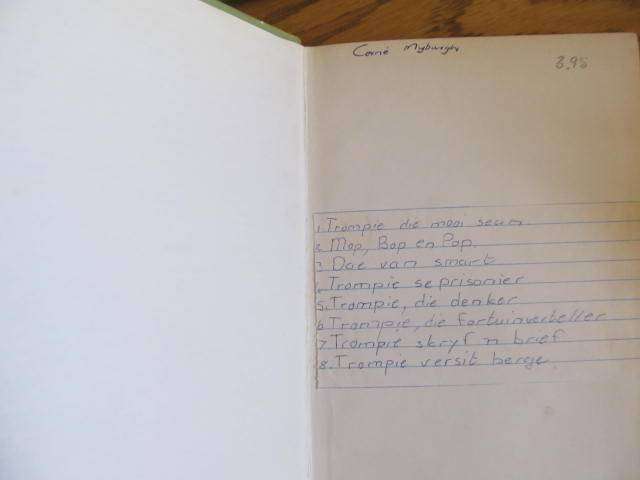 Corné Myburgh
3.95
1. Trompie die mooi seun
2. Mop, Bop en Pop.
3. Dae van smart
4. Trompie se prisonier
5. Trompie, die denker
6. Trompie, die fortuinverteller
7. Trompie skryf n brief
8. Trompie versit berge.